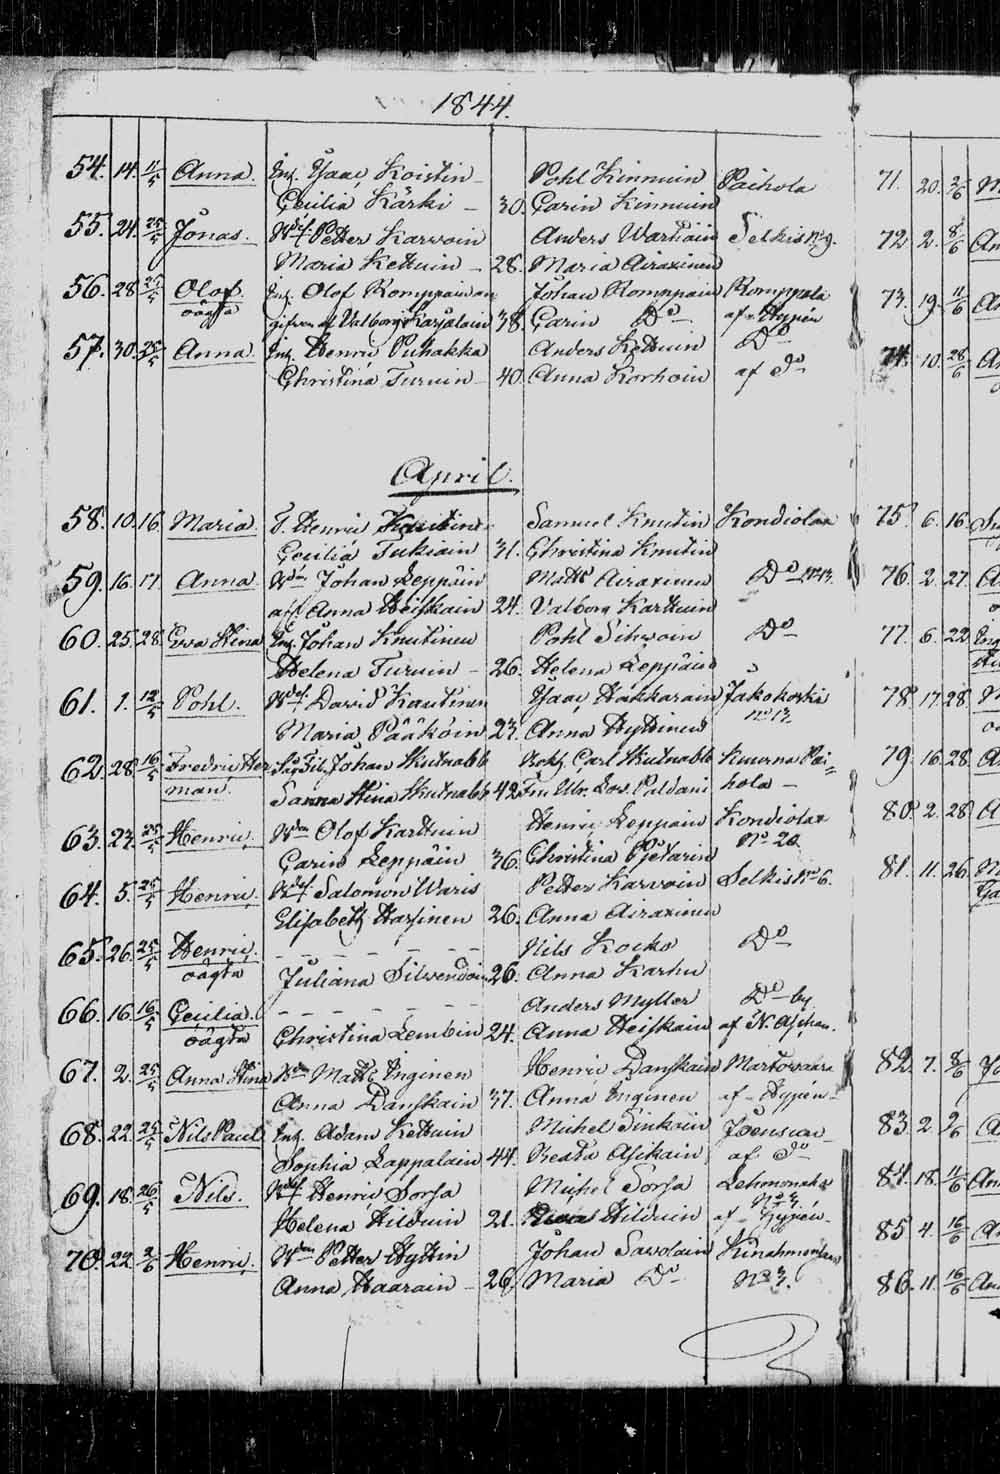 1844.
54. 14. 11/5 Anna. Inh. Isaac Koistin Pohl Kinnuin Paihola
Cecilia Kärki 30. Carin Kinnuin
55. 24. 25/5 Jonas. Petter Karvoin Anders Warhain Selkis No 9.
Maria Kettuin 28. Maria Airaxinen
56. 28. 25/5 Olof. Inh. Olof Romppain an Johan Romppain Romppala
oägta gifven af Valborg Karjalain 38. Carin Do af Hypén
57. 30. 25/5 Anna. Inh. Henric Puhakka Anders Kettuin Do
Christina Turuin 40. Anna Korhoin af Do
April.
58. 10. 16. Maria. Henric Samuel Knutin Kondiolax
Cecilia Tukiain 31. Christina Knutin
59. 16. 17. Anna. Johan Leppäin Matts Airaxinen Do
Anna Heiskain 24. Valborg Karttuin
60. 25. 28. Ewa Stina Inh. Johan Knutinen Pohl Sihvoin Do
Helena Turuin 26. Helena Leppäin
61. 1. 12/5 Pohl. David Kautinen Isaac Hakkarain Jakokoski
Maria Pääköin 27. Anna Hyttinen No 13.
62. 28. 16/5 Fredric Her Johan Skutnabb Carl Skutnabb Kuurna Pai=
man. Sanna Stina Skutnabb 42. Fru Ulr. Lov. Paldani hola
63. 23. 25/5 Henric. Olof Karttuin Henric Leppäin Kondiolax
Carin Leppäin 36. Christina Pjetarin No 20.
64. 5. 25/5 Henric. Salomon Waris Petter Karvoin Selkis No 6.
Elisabeth Harsinen 26. Anna Airaxinen
65. 26. 25/5 Henric. Nils Kocko Do
oägta Juliana Silvendoin 26. Anna Karhu
66. 16. 16/5 Cecilia. Anders Myller Do by
oägta Christina Lembin 24. Anna Heiskain af N. Aschan.
67. 2. 25/5 Anna Stina Matts Inginen Henric Danskain Martovaara
Anna Danskain 37. Anna Inginen af Hypén
68. 22. 25/5 Nils Paul Inh. Adam Kettuin Michel Sinkoin Joensuu
Sophia Lappalain 44. Beata Asikain af Do
69. 18. 26/5 Nils. Henric Sorsa Michel Sorsa Lehmonaho
Helena Hilduin 21. Hilduin af Hypén
70. 22. 2/6 Henric. Petter Hyttin Johan Savolain
Anna Haarain 26. Maria Do No 3.
71. 20. 2/6
72. 2. 8/6 An
73. 19. 11/6 An
74. 10. 28/6 An
75. 6. 16.
76. 2. 27. A
77. 6. 22.
78. 17. 28.
79. 16. 28. A
80. 2. 28. A
81. 11. 26.
82. 7. 8/6
83. 2. 9/6
84. 18. 11/6 Ann
85. 4. 16/6 An
86. 11. 16/6 An